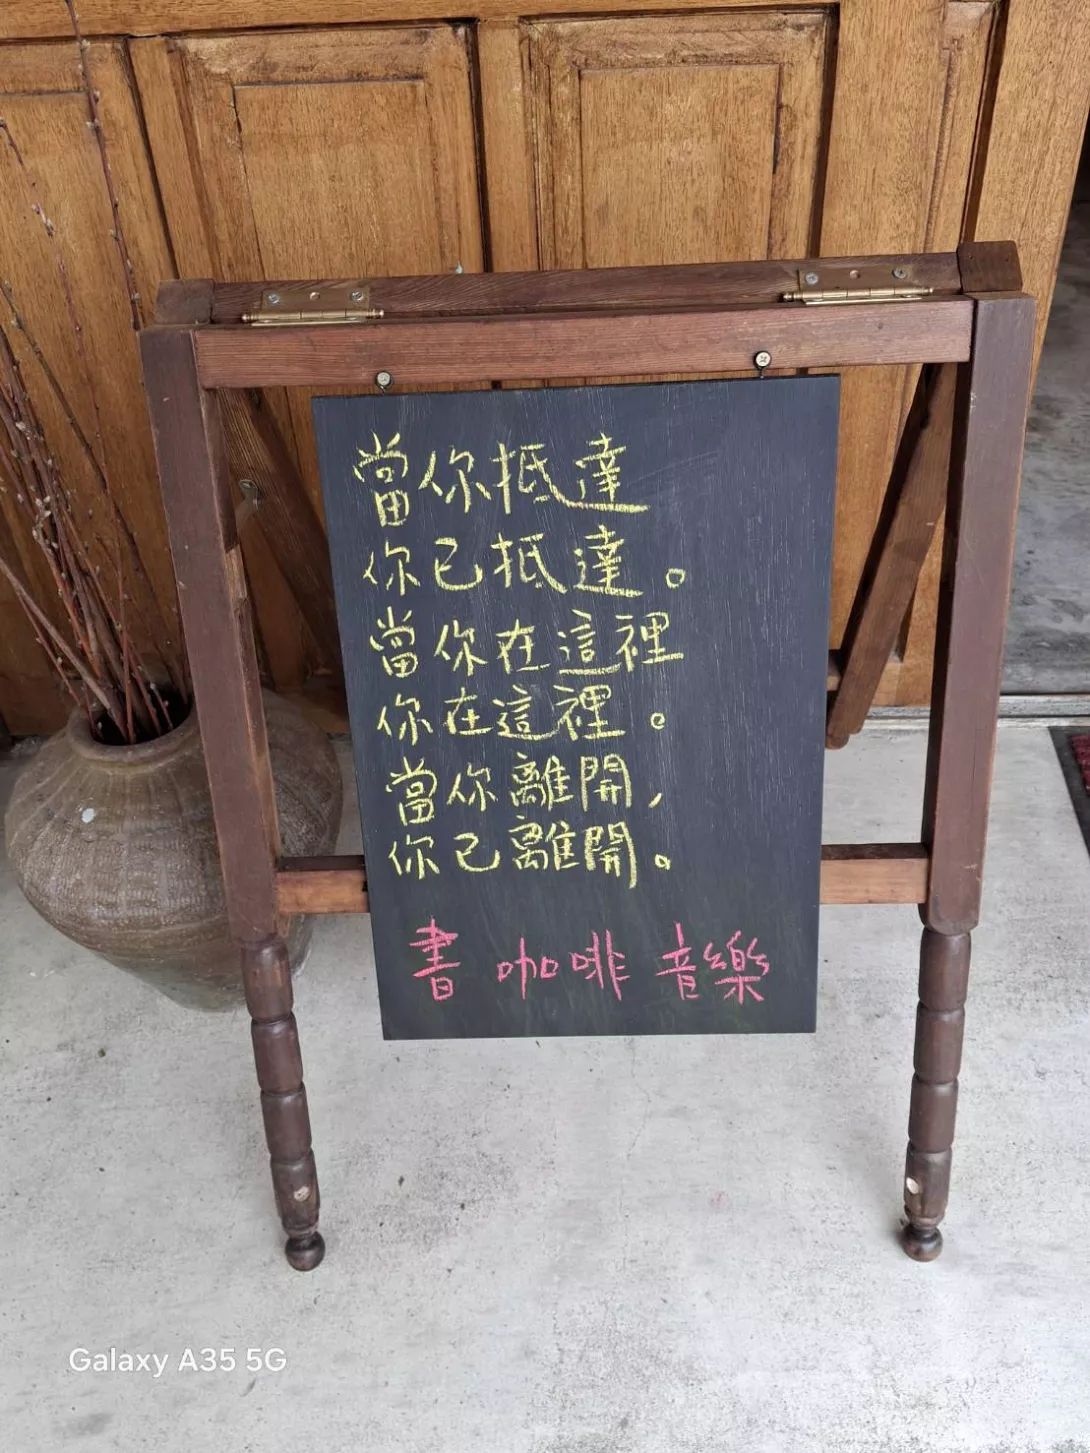 當你抵達
你已抵達。
當你在這裡
你在這裡。
當你離開,
你已離開。
書 咖啡 音樂
Galaxy A35 5G